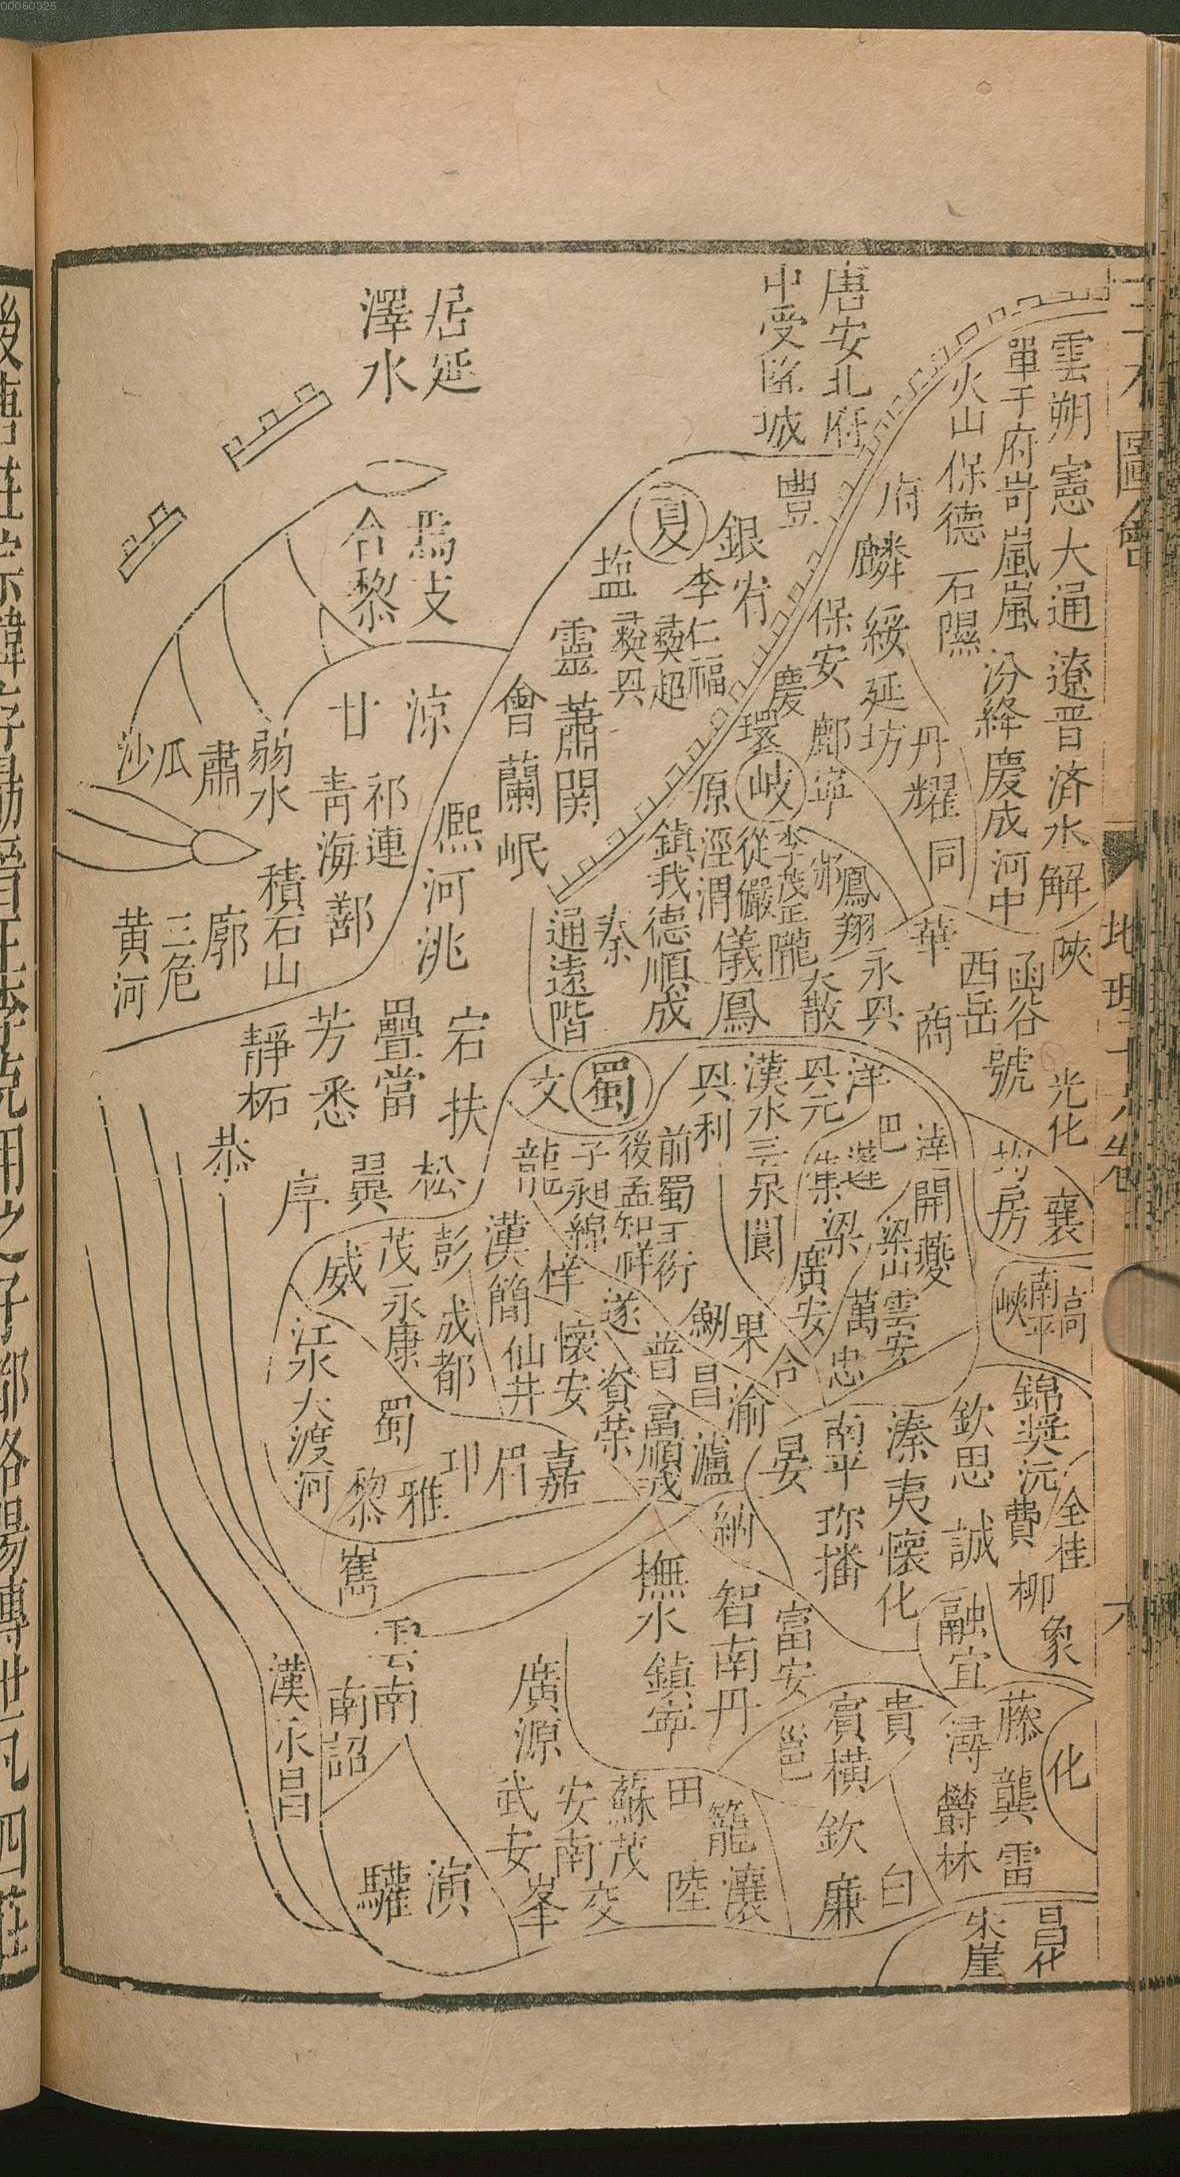 00060325
三才圖會
地理十六卷
雲朔
憲大通
遼晋
済水解
陝
單于府岢嵐嵐
汾絳慶成河中
火山保德
石隰
府麟綏延坊
丹耀同
唐安北府
中受降城
豐
保安
鄜寧
慶
環
銀宥
夏
李仁福
彝超
彝興
塩
靈
蕭関
會蘭岷
岐
李茂正
從儼
原涇渭儀鳳
隴
鎮戎德順成
秦
通遠階
鳳翔
永興
大散
華
商
西岳
函谷號
光化
均房
襄
高
南平
峽
居延
澤水
馬支
合黎
涼
甘
祁連
青海鄯
弱水
肅
瓜
沙
熈河洮
積石山
廓
三危
黄河
宕扶
疊當
芳悉
靜柘
恭
松
翼
序
蜀
文
興利
漢水三泉閬
興元
洋
巴
蓬
集梁
達開夔
梁山雲安
廣安
萬忠
前蜀王衍
後孟知祥
子昶綿
龍
漢簡
梓
遂
仙井
懷安
普
資榮
富順戎
昌
瀘
果
渝
合
彭成都
茂永康
威
江水大渡河
蜀
黎
雅
卭
眉
嘉
嶲
雲南
南詔
漢永昌
驩
演
晏
南平
珎播
溱夷懷化
欽思
誠
融宜
錦奨沅
費
柳
象
全桂
納
撫水
鎮寧
智南丹
富安
廣源
武安
安南
蘇茂
峯
交
田
籠
陸
瀼
邕
賓横
欽
廉
貴
白
潯
欝林
藤
龔
雷
化
朱崖
昌化
後唐莊宗諱存勗晋王李克用之子都洛陽傳世凡四莊